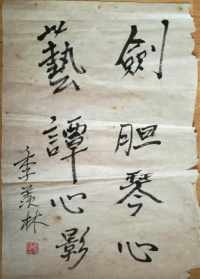 劍胆琴心
藝譚心影
季羨林